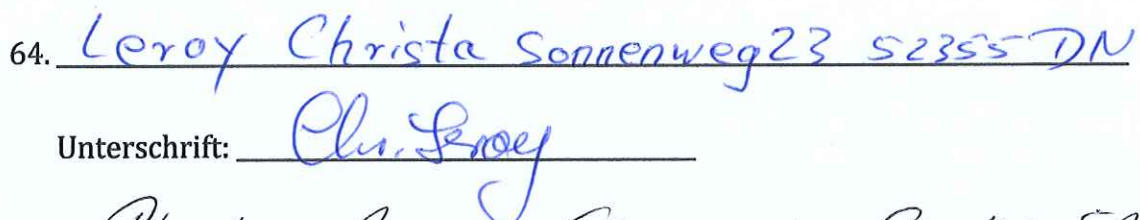 64. Leroy Christa Sonnenweg 23 52355 DN
Unterschrift: Chr. Leroy